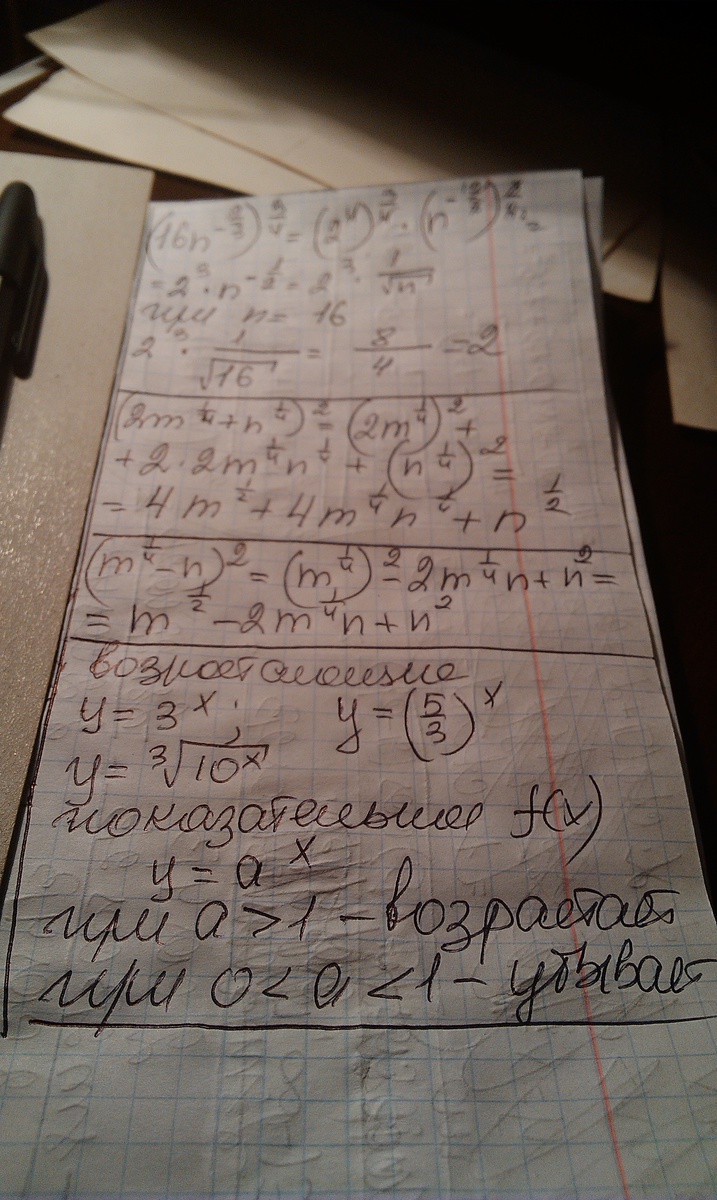 (16n^{-2/3})^{3/4} = (2^4)^{3/4} · (n^{-2/3})^{3/4} =
= 2^3 · n^{-1/2} = 2^3 · 1/√n
при n = 16
2^3 · 1/√16 = 8/4 = 2
(2m^{1/4} + n^{1/4})^2 = (2m^{1/4})^2 +
+ 2 · 2m^{1/4}n^{1/4} + (n^{1/4})^2 =
= 4m^{1/2} + 4m^{1/4}n^{1/4} + n^{1/2}
(m^{1/4} - n)^2 = (m^{1/4})^2 - 2m^{1/4}n + n^2 =
= m^{1/2} - 2m^{1/4}n + n^2
возрастающие
y = 3^x; y = (5/3)^x
y = ∛10^x
показательная f(x)
y = a^x
при a > 1 - возрастает
при 0 < a < 1 - убывает